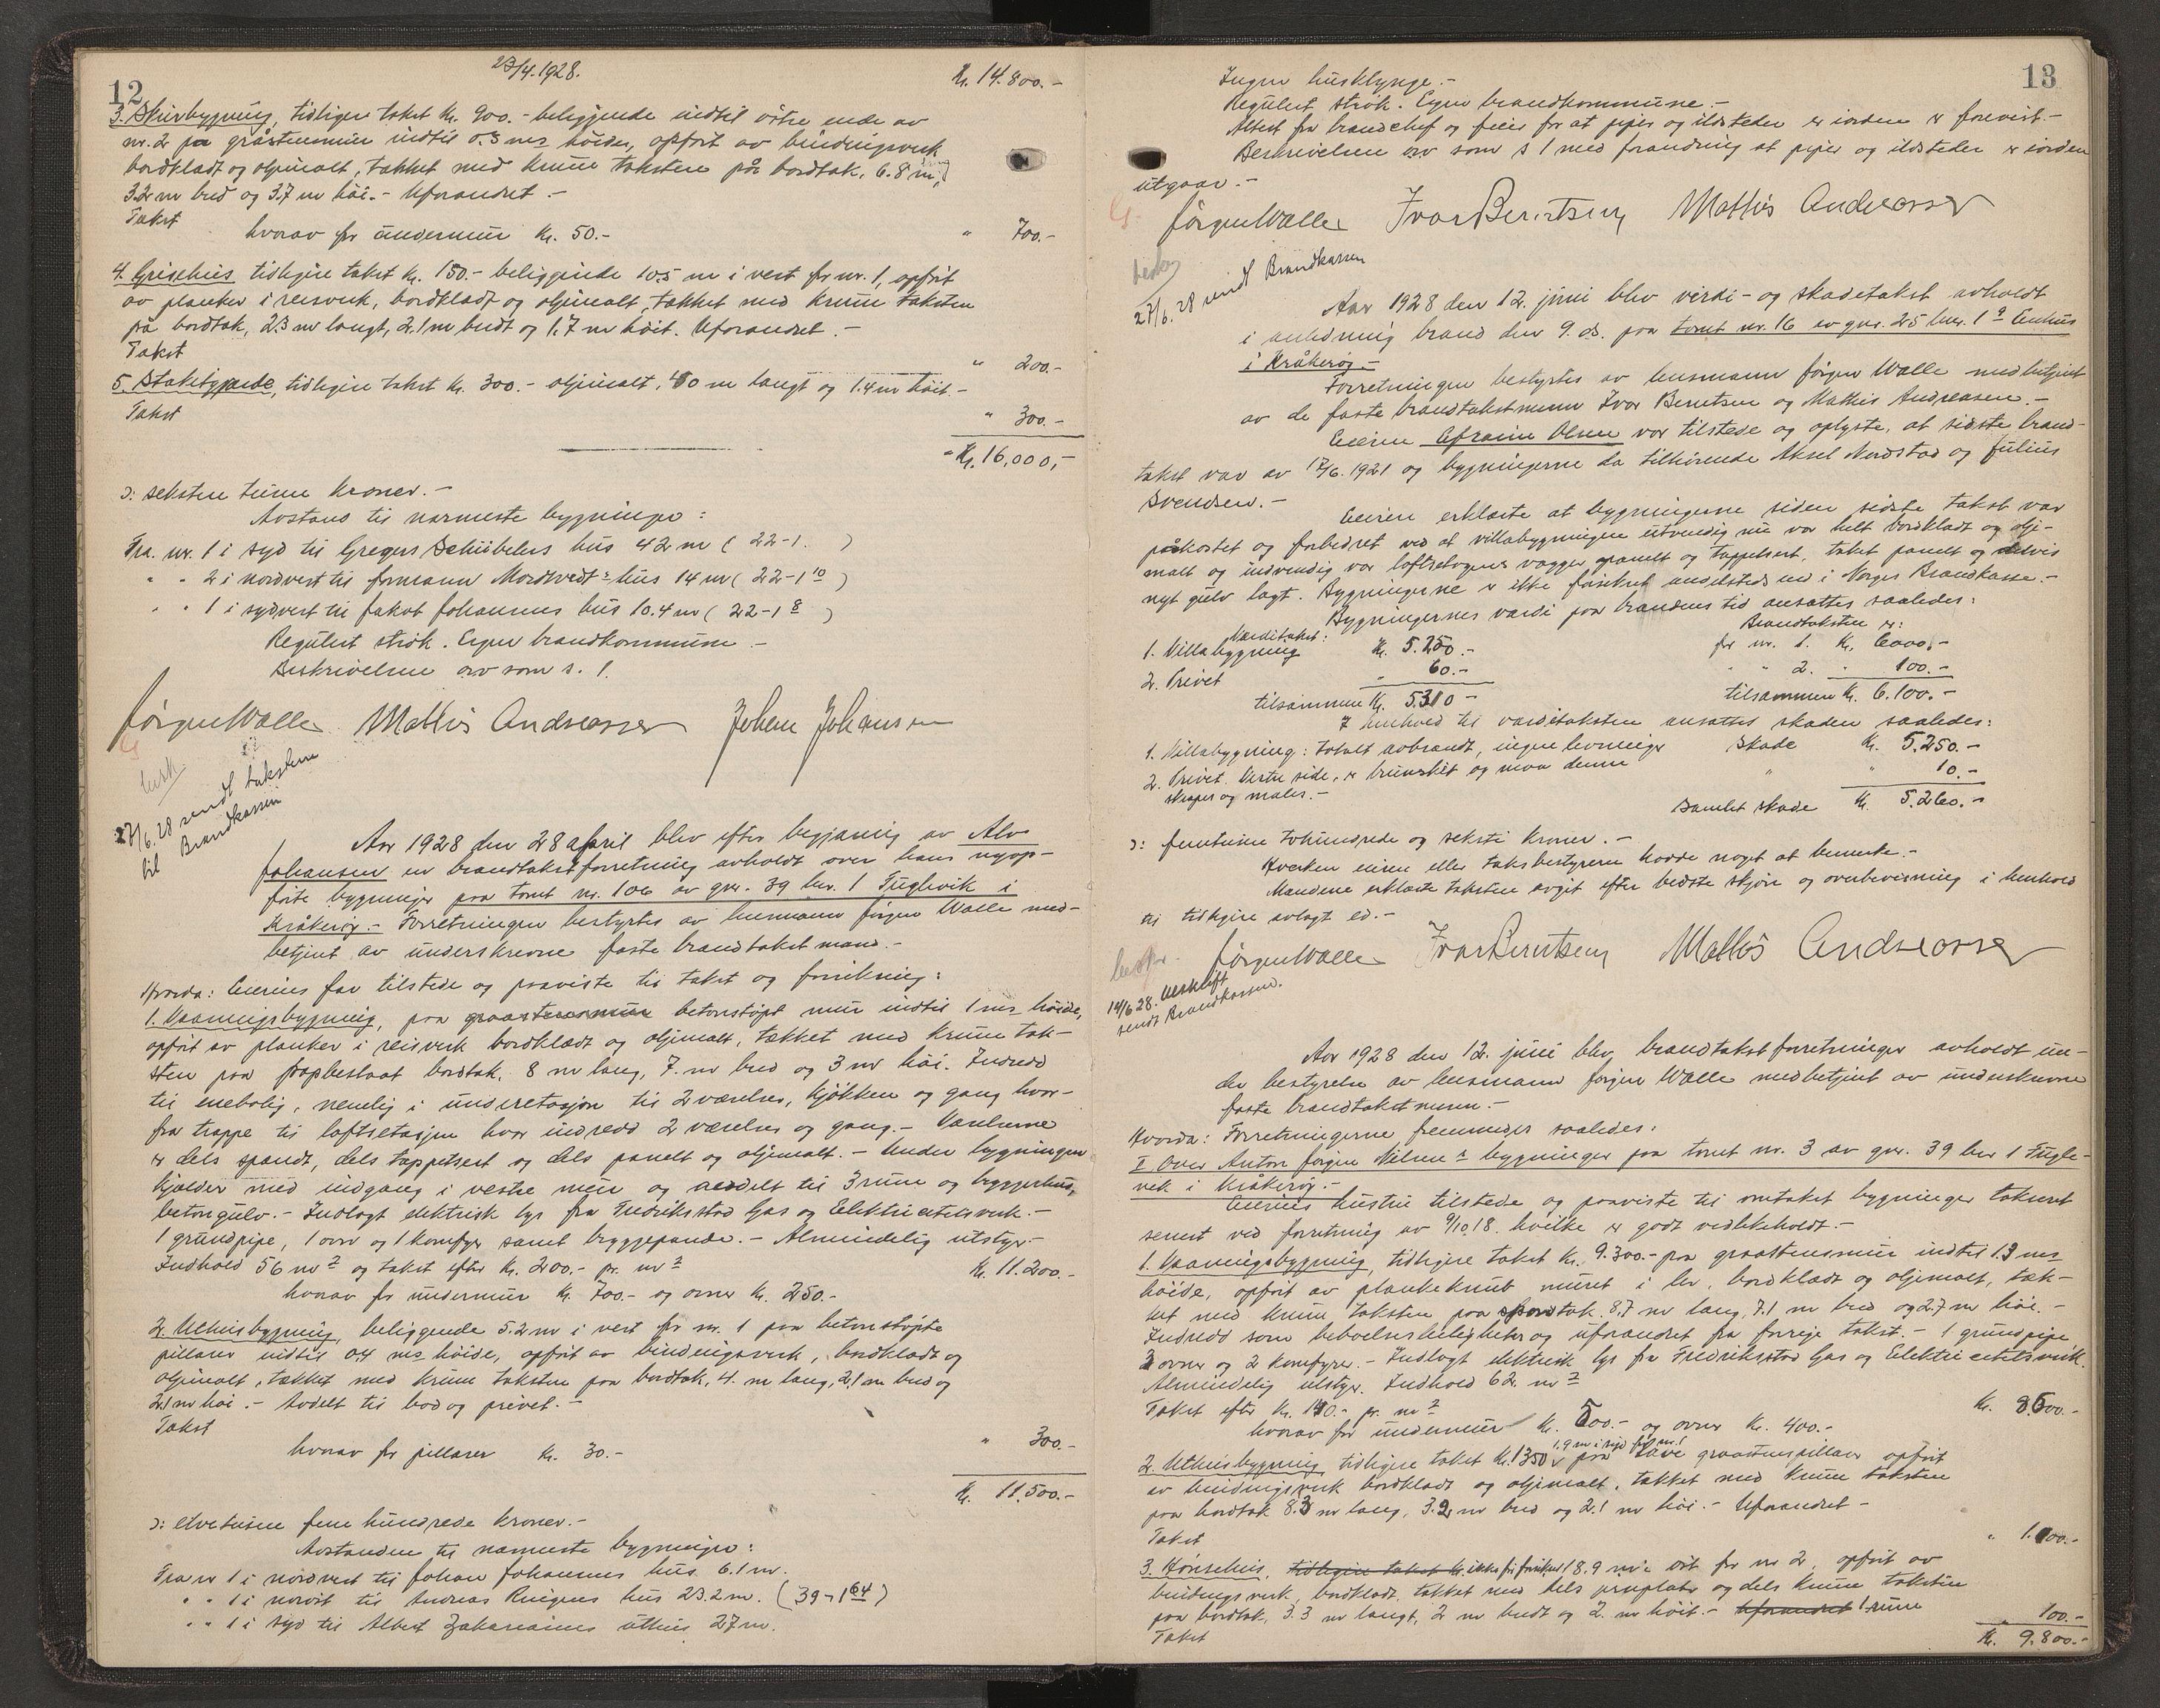 12
23/4.1928.
Kr. 14.800.-
3. Skurbygning, tidligere takst Kr. 900.- beliggende indtil østre ende av
nr. 2 paa gråstensmur indtil 0.3 ms høide, opført av bindingsverk
bordklædt og oljemalt, tækket med krum taksten på bordtak, 6.8 m lang,
3.2 m bred og 3.7 m høi. - Uforandret. -
Takst " 700.-
hvorav for undermur Kr. 50.-
4. Grisehus, tidligere takst Kr. 150.- beliggende 10.5 m i vest for nr. 1, opført
av planker i reisverk, bordklædt og oljemalt, tækket med krum taksten
på bordtak, 2.3 m langt, 2.1 m bredt og 1.7 m høit. Uforandret. -
Takst " 200.-
5. Stakitgjærde, tidligere takst Kr. 300.- oljemalt, 40 m langt og 1.4 m høit. -
Takst " 300.-
Kr. 16,000,-
ɔ: seksten tusen kroner. -
Avstand til nærmeste bygninger:
Fra nr. 1 i syd til Gregers Schübelers hus 42 m (22-1. )
" " 2 i nordvest til formann Mordtvedts hus 14 m (22-1 10)
" " 1 i sydvest til Jakob Johansens hus 10.4 m (22-1 8)
Regulert strøk. Egen brandkommune. -
Beskrivelsen osv som s. 1.
Jørgen Walle Mathis Andreassen Johan Johansen
besk.
27/6.28 sendt taksten
til Brandkassen
Aar 1928 den 28 april blev efter begjæring av Alv
Johansen en brandtakstforretning avholdt over hans nyop-
førte bygninger paa tomt nr. 106 av gnr. 39 bnr. 1 Fuglevik i
Kråkerøy. - Forretningen bestyrtes av lensmann Jørgen Walle med-
betjent av underskrevne faste brandtakstmænd. -
Hvorda: Eierens far tilstede og paaviste til takst og forsikring:
1. Vaaningsbygning, paa graastensmur betonstøpt mur indtil 1 ms høide,
opført av planker i reisverk bordklædt og oljemalt, tækket med krum tak-
sten paa papbeslaat bordtak, 8 m lang, 7. m bred og 3 m høi. Indredd
til enebolig, nemlig i underetasjen til 2 værelser, kjøkken og gang hvor-
fra trappe til loftsetasjen hvor indredd 2 værelser og gang. - Værelserne
er dels spændt, dels tappetsert og dels panelt og oljemalt. - Under bygningen
kjælder med indgang i vestre mur og avdelt til 3 rum og bryggerhus,
betongulv. - Indlagt elektrisk lys fra Fredriksstad Gas og Elektricitetsverk. -
1 grundpipe, 1 ovn og 1 komfyr samt bryggepande. - Almindelig utstyr. -
Indhold 56 m2 og takst efter Kr. 200.- pr. m2 Kr. 11.200.-
hvorav for undermur Kr. 700.- og ovner Kr. 250.-
2. Uthusbygning, beliggende 5.2 m i vest for nr. 1 paa betonstøpte
pillarer indtil 0.4 ms høide, opført av bindingsverk, bordklædt og
oljemalt, tækket med krum taksten paa bordtak, 4. m lang, 2.1 m bred og
2.1 m høi. - Avdelt til bod og privet. -
Takst " 300.-
hvorav for pillarer Kr. 30.-
Kr. 11.500.-
ɔ: elvetusen fem hundrede kroner. -
Avstanden til nærmeste bygninger:
Fra nr 1 i nordvest til Johan Johansens hus 6.1 m.
" " 1 i nordøst til Andreas Ringens hus 23.2 m. (39-1 64)
" " 1 i syd til Albert Zakariasens uthus 27 m.
13
Ingen husklynge. -
Regulert strøk. Egen brandkommune. -
Attest fra brandchef og feier for at piper og ildsteder er i orden er forevist. -
Beskrivelsen osv som s 1 med forandring at piper og ildsteder er i orden
utgaar. -
Jørgen Walle Ivar Berntsen Mathis Andreassen
besk.
27/6.28 sendt Brandkassen
Aar 1928 den 12. juni blev verdi- og skadetakst avholdt
i anledning brand den 9. ds. paa tomt nr. 16 av gnr. 25 bnr. 1 9 Enhus
i Kråkerøy. -
Forretningen bestyrtes av lensmann Jørgen Walle medbetjent
av de faste brandtakstmenn Ivar Berntsen og Mathis Andreasen. -
Eieren Efraim Olsen var tilstede og oplyste, at sidste brand-
takst var av 17/6.1921 og bygningerne da tilhørende Aksel Nordstad og Julius
Svendsen. -
Eieren erklærte at bygningerne siden sidste takst var
påkostet og forbedret ved at villabygningen utvendig nu var helt bordklædt og olje-
malt og indvendig var loftsetagens vægger panelt og tappetsert, taket panelt og delvis
nyt gulv lagt. Bygningerne er ikke forsikret andetsteds end i Norges Brandkasse. -
Bygningernes værdi paa brandens tid ansattes saaledes:
Værditakst: Brandtaksten er:
1. Villabygning Kr. 5.250.- for nr. 1. Kr. 6000,-
2. Privet " 60.- " " 2. " 100.-
tilsammen Kr. 5.310 - tilsammen Kr. 6.100.-
I henhold til værditaksten ansattes skaden saaledes:
1. Villabygning: totalt avbrændt, ingen levninger Skade Kr. 5.250.-
2. Privet. Vestre side, er brunsvidt og maa denne " " 10.-
skrapes og males. -
Samlet skade Kr. 5.260.-
ɔ: femtusen tohundrede og seksti kroner. -
Hverken eieren eller takstbestyreren hadde noget at bemerke. -
Mændene erklærte taksten avgit efter bedste skjøn og overbevisning i henhold
til tidligere avlagt ed. -
Jørgen Walle Ivar Berntsen Mathis Andreassen
14/6 28. utskrift
sendt Brandkassen.
Aar 1928 den 12. juni blev brandtakstforretninger avholdt un-
der bestyrelse av lensmann Jørgen Walle medbetjent av underskrevne
faste brandtakstmenn. -
Hvorda: Forretningerne fremmedes saaledes:
I Over Anton Jørgen Nilsens bygninger paa tomt nr. 3 av gnr. 39 bnr 1 Fugle-
vik i Kråkerøy. -
Eierens hustru tilstede og paaviste til omtakst bygninger takseret
senest ved forretning av 9/10 18. hvilke er godt vedlikeholdt. -
1. Vaaningsbygning, tidligere takst Kr. 9.300.- paa graastensmur indtil 1.3 ms
høide, opført av plankeknub muret i ler, bordklædt og oljemalt, tæk-
ket med krum taksten paa bordtak. 8.7 m lang, 7.1 m bred og 2.7 m høi. -
Indredd som beboelsesleiligheter og uforandret fra forrige takst. - 1 grundpipe,
3 ovner og 2 komfyrer. - Indlagt elektrisk lys fra Fredriksstad Gas og Elektricitetsverk.
Almindelig utstyr. Indhold 62 m2
Takst efter Kr. 140.- pr. m2 Kr. 8.600.-
hvorav for undermur Kr. 500.- og ovner Kr. 400.-
1,9 m i syd for nr. 1
2. Uthusbygning tidligere takst Kr. 1350 paa lave graastenspillarer opført
av bindingsverk bordklædt og oljemalt, tækket med krum taksten
paa bordtak 8.3 m lang, 3.2 m bred og 2.1 m høi. - Uforandret -
Takst " 1.100.-
3. Hønsehus, tidligere takst Kr. ikke før forsikret 8.9 m i øst for nr 2, opført av
bindingsverk, bordklædt, tækket med dels jernplater og dels krum taksten
paa bordtak, 3.3 m langt, 2 m bredt og 2. m høit. - Uforandret 1 rum
Takst " 100.-
Kr. 9.800.-